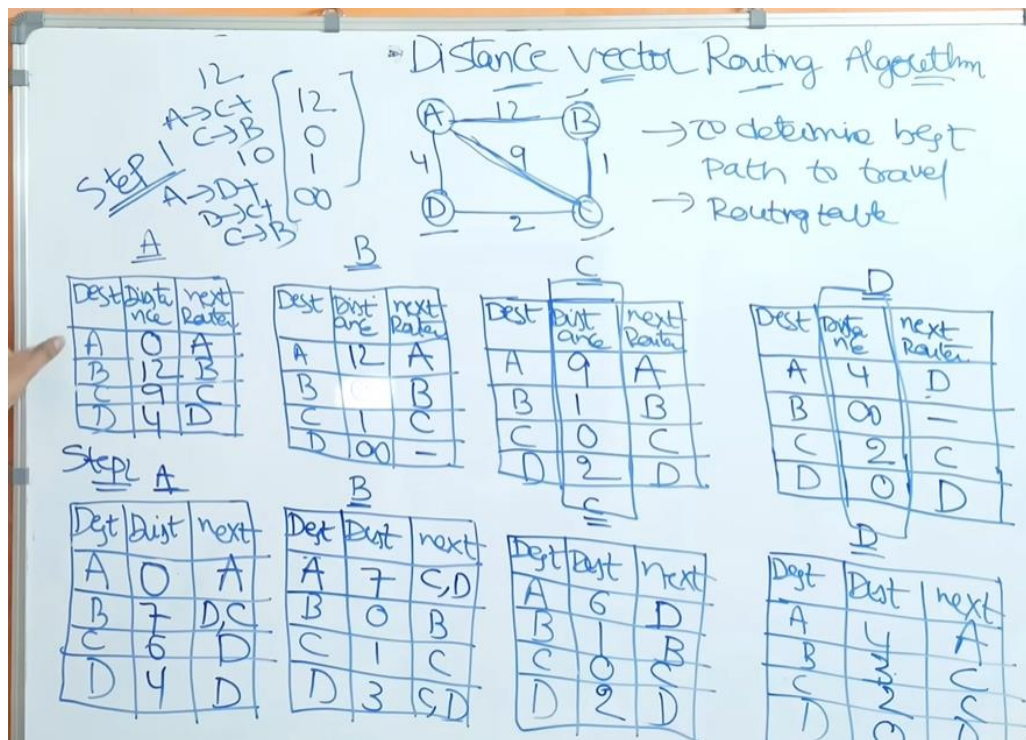 Distance Vector Routing Algorithm
12
A→C+
C→B
10
Step 1
A→D+
D→C+
C→B
12
0
1
∞
A 12 B
4 9 1
D 2 C
→ to determine best
Path to travel
→ Routing table
A
Dest Distance next Router
A 0 A
B 12 B
C 9 C
D 4 D
B
Dest Distance next Router
A 12 A
B B
C 1 C
D ∞ -
C
Dest Distance next Router
A 9 A
B 1 B
C 0 C
D 2 D
C
D
Dest Distance next Router
A 4 D
B ∞ -
C 2 C
D 0 D
D
Step2 A
Dest Dist next
A 0 A
B 7 D,C
C 6 D
D 4 D
B
Dest Dist next
A 7 C,D
B 0 B
C 1 C
D 3 C,D
Dest Dist next
A 6 D
B 1 B
C 0 C
D 2 D
Dest Dist next
A 4 A
B 3 C
C 2 C
D 0 D